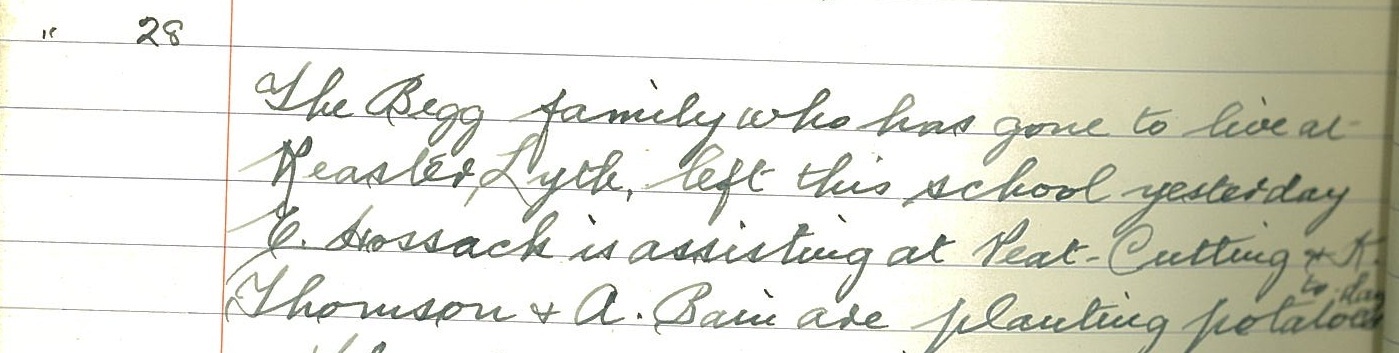 " 28
The Begg family who has gone to live at
Reaster, Lyth, left this school yesterday
E. Hossack is assisting at Peat-Cutting & K.
to-day
Thomson & A. Bain are planting potatoes